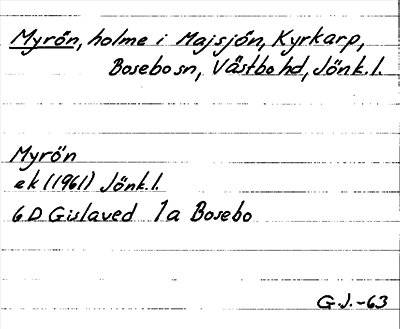 Myrön, holme i Majsjön, Kyrkarp,
Bosebo sn, Västbo hd, Jönk.l.
Myrön
ek (1961) Jönk.l.
6D Gislaved 1a Bosebo
G.J.-63